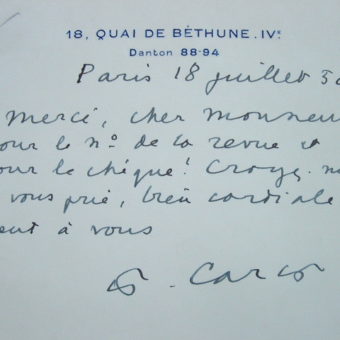 18, QUAI DE BÉTHUNE. IVᵉ
Danton 88-94
Paris 18 juillet
merci, cher monsieu
our le nº de la revue et
our le chèque! Croyez-
vous prie, bien cordiale
ent à vous
Carco